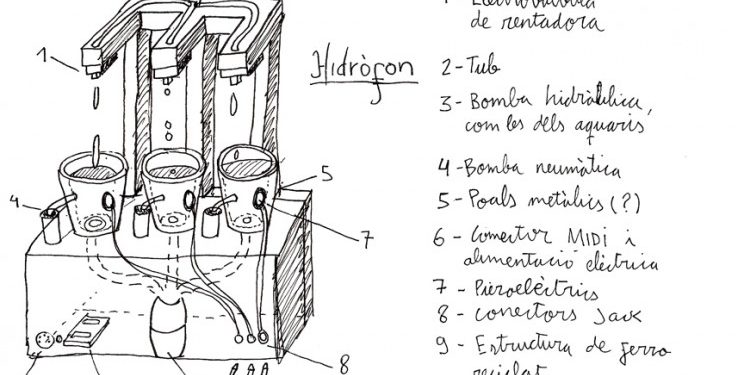 Hidròfon
1
4
5
7
8
de rentadora
2 - Tub
3 - Bomba hidràulica,
com les dels aquaris
4 - Bomba neumàtica
5 - Poals metàl·lics (?)
6 - Conector MIDI i
alimentació elèctrica
7 - Piezoelèctrics
8 - conectors Jack
9 - Estructura de ferro
reciclat